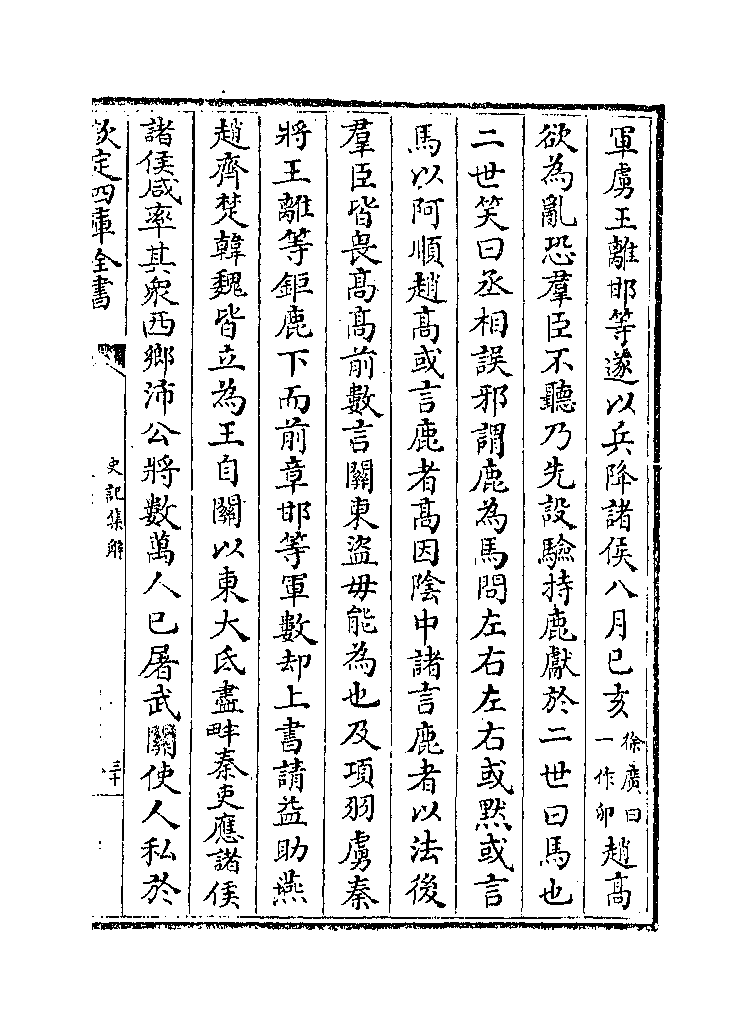 軍虜王離邯等遂以兵降諸侯八月己亥徐廣曰一作卯趙髙
欲為亂恐羣臣不聽乃先設驗持鹿獻於二世曰馬也
二世笑曰丞相誤邪謂鹿為馬問左右左右或黙或言
馬以阿順趙髙或言鹿者髙因陰中諸言鹿者以法後
羣臣皆畏髙髙前數言關東盜毋能為也及項羽虜秦
將王離等鉅鹿下而前章邯等軍數却上書請益助燕
趙齊楚韓魏皆立為王自關以東大氐盡畔秦吏應諸侯
諸侯咸率其衆西鄉沛公將數萬人已屠武關使人私於
欽定四庫全書
史記集解
三十